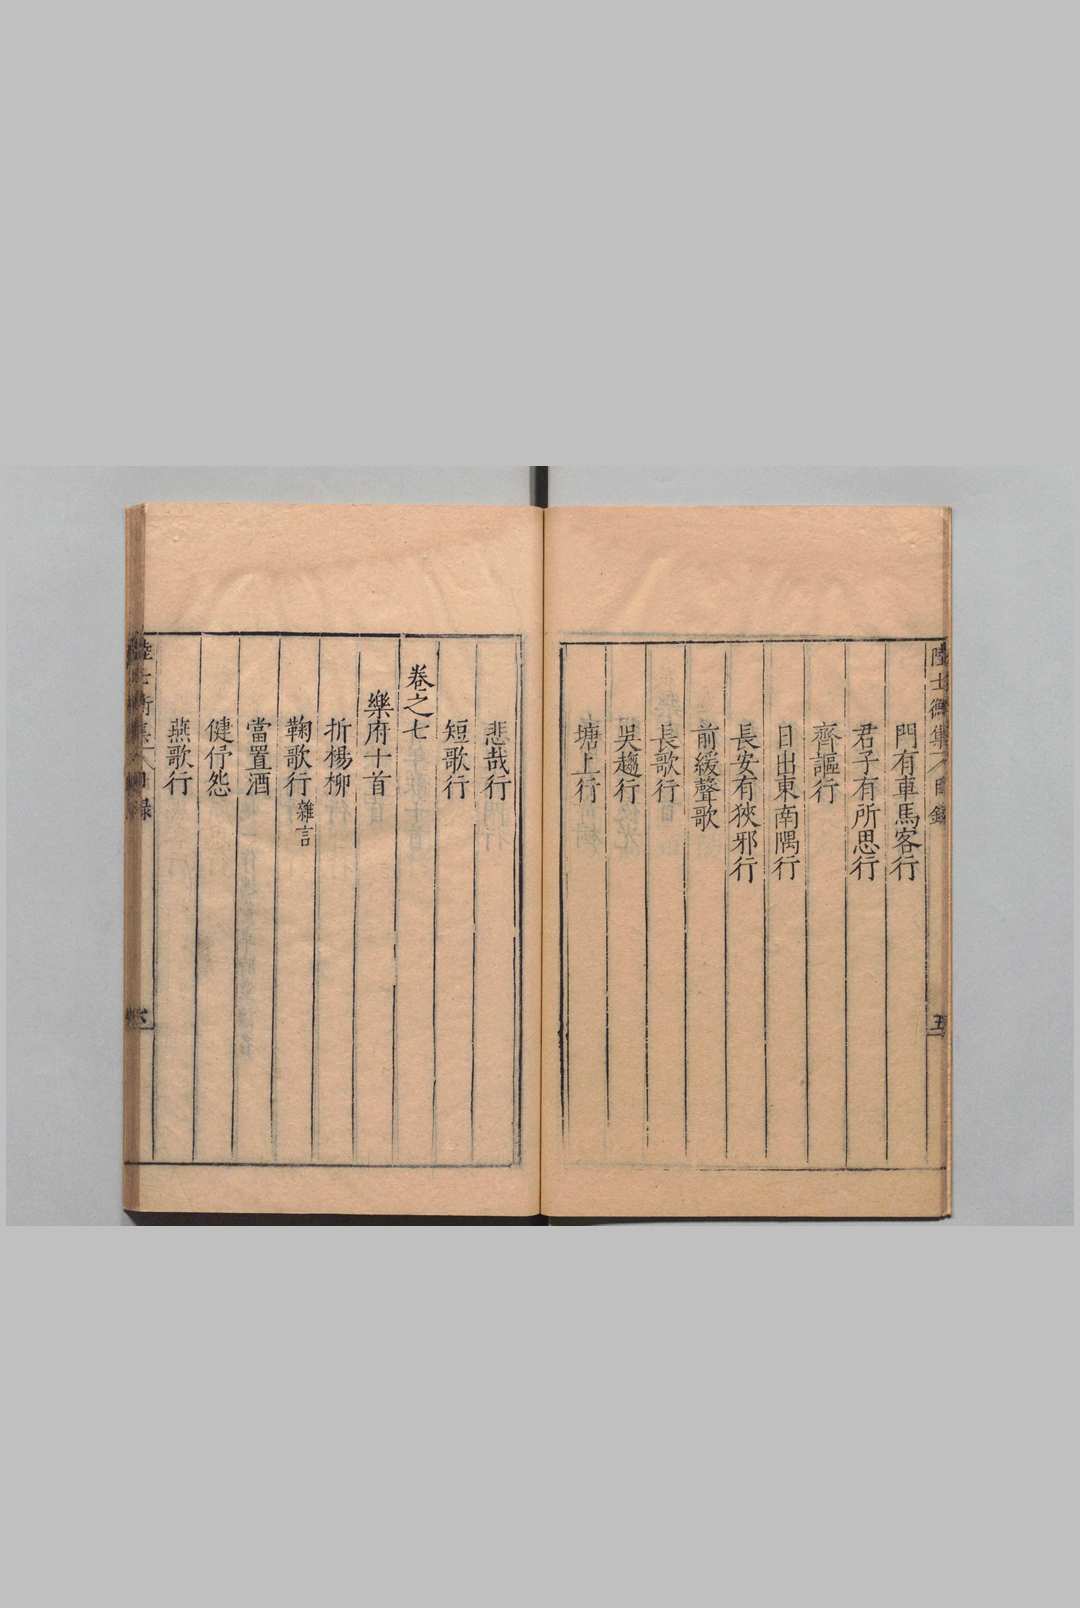 陸士衡集 目錄
五
門有車馬客行
君子有所思行
齊謳行
日出東南隅行
長安有狹邪行
前緩聲歌
長歌行
吳趨行
塘上行
悲哉行
短歌行
卷之七
樂府十首
折楊柳
鞠歌行 雜言
當置酒
倢伃怨
燕歌行
陸士衡集 目錄
六